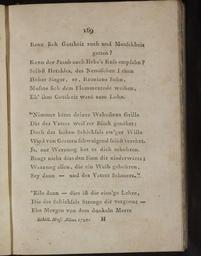 169
Kann sich Gottheit auch und Menschheit
gatten?
Kann der Staub auch Hebe's Kuss empfahn?
Selbst Herakles, des Nemäischen Löwen
Hoher Sieger, er, Kronions Sohn,
Musste sich dem Flammentode weihen,
Eh' ihm Gottheit ward zum Lohn.
"Nimmer hörte deines Wahnsinns Grille
Die des Vaters Weil'
Doch des hohen Schicksals ew'ger Wille
Wird von Göttern schweigend
Ja, zur Warnung hat er dich erkohren.
Beugt nicht dies den Sinn die
Warnung allen, die ein Weib gebohren,
Sey dann — und des Vaters Schmerz."
"Eile dann — dies ist die einz'ge Lehre,
Die des Schicksals Strenge dir vergönnt —
Ehe Morgen von dem dunkeln Meere
Schill. Mus. Alm. 1797. H